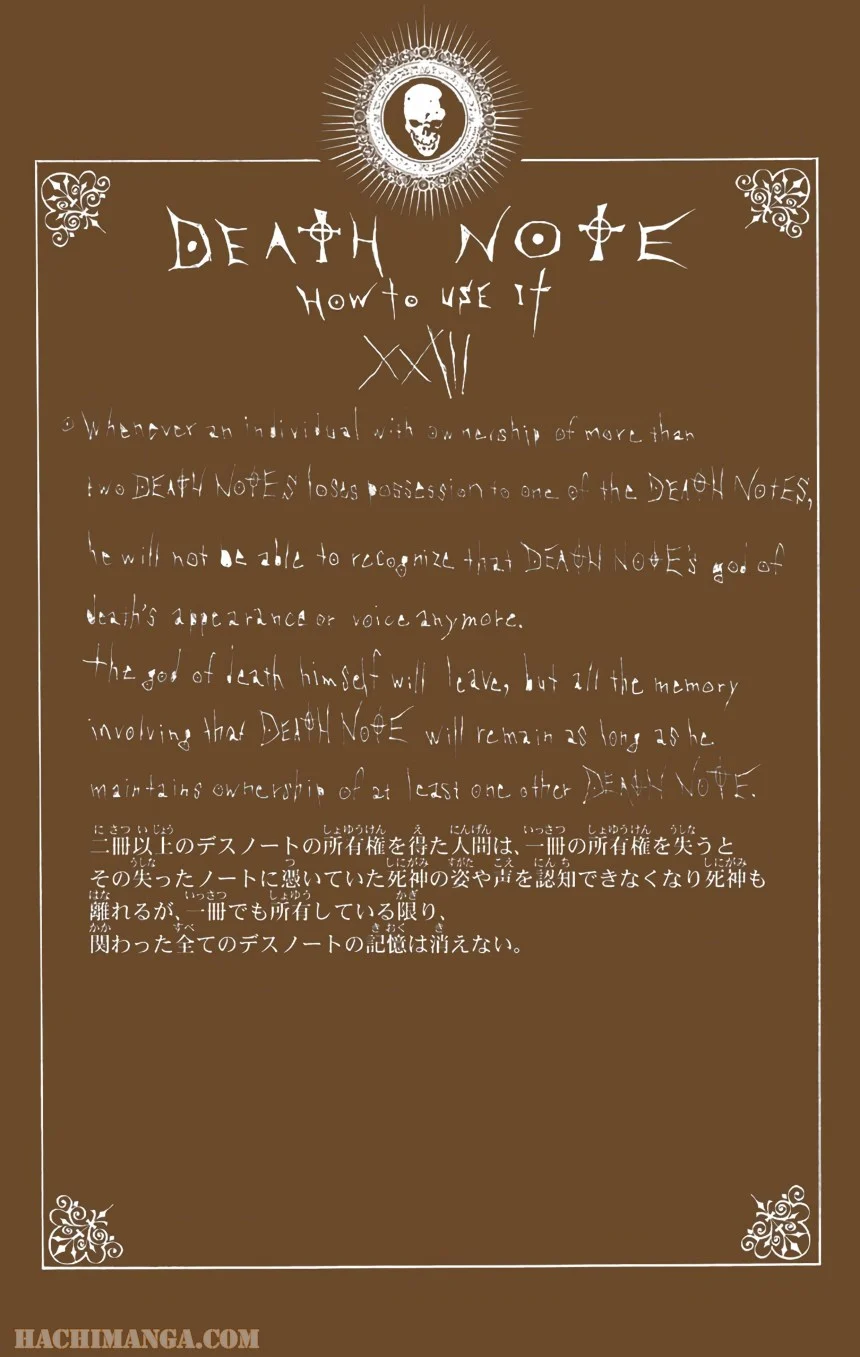 DEATH NOTE
HOW TO USE IT
XXIII
Whenever an individual with ownership of more than
two DEATH NOTES loses possession to one of the DEATH NOTES,
he will not be able to recognize that DEATH NOTE's god of
death's appearance or voice anymore.
The god of death himself will leave, but all the memory
involving that DEATH NOTE will remain as long as he
maintains ownership of at least one other DEATH NOTE.
二冊以上のデスノートの所有権を得た人間は、一冊の所有権を失うと
その失ったノートに憑いていた死神の姿や声を認知できなくなり死神も
離れるが、一冊でも所有している限り、
関わった全てのデスノートの記憶は消えない。
HACHIMANGA.COM